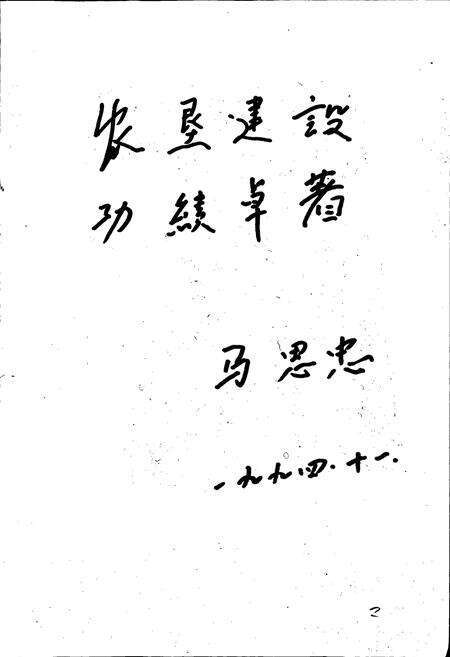 农垦建設
功績卓著
马思忠
一九九四.十一.